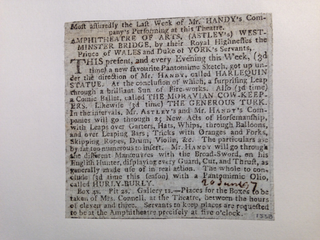 Most assuredly the Last Week of Mr. HANDY's Com-
pany's Performing at this Theatre.
AMPHITHEATRE OF ARTS, (ASTLEY's) WEST-
MINSTER BRIDGE, by their Royal Highnesses the
Prince of WALES and Duke of YORK's Servants,
THIS present, and every Evening this Week, (3d
time) a new favourite Pantomimic Sketch, got up un-
der the direction of Mr. HANDY, called HARLEQUIN
STATUE. At the conclusion of which, a surprising Leap
through a brilliant Sun of Fire-works. Also (3d time)
a Comic Ballet, called THE MORAVIAN COW-KEEP-
ERS. Likewise (3d time) THE GENEROUS TUKE.
In the intervals, Mr. ASTLEY's and Mr. HANDY's Com-
panies will go through 25 New Acts of Horsemanship,
with Leaps over Garters, Hats, Whips, through Balloons,
and over Leaping Bars; Tricks with Oranges and Forks,
Skipping Ropes, Drum, Violin, &c. The particulars are
by far too numerous to insert. Mr. HANDY will go through
the different Manœuvres with the Broad-Sword, on his
English Hunter, displaying every Guard, Cut, and Thrust, as
generally made use of in real action. The whole to con-
clude (3d time this season) with a Pantomimic Olio,
called HURLY-BURLY. 20 June
Box 4s. Pit 2s. Gallery 1s.—Places for the Boxes to be
taken of Mrs. Connell, at the Theatre, between the hours
of eleven and three. Servants to keep places are requested
to be at the Amphitheatre precisely at five o'clock.